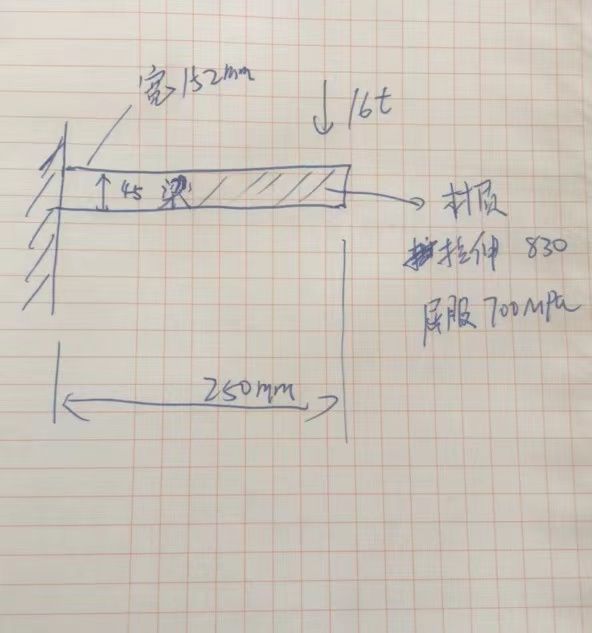 宽152mm
16t
45 梁
材质
拉伸 830
屈服700MPa
250mm